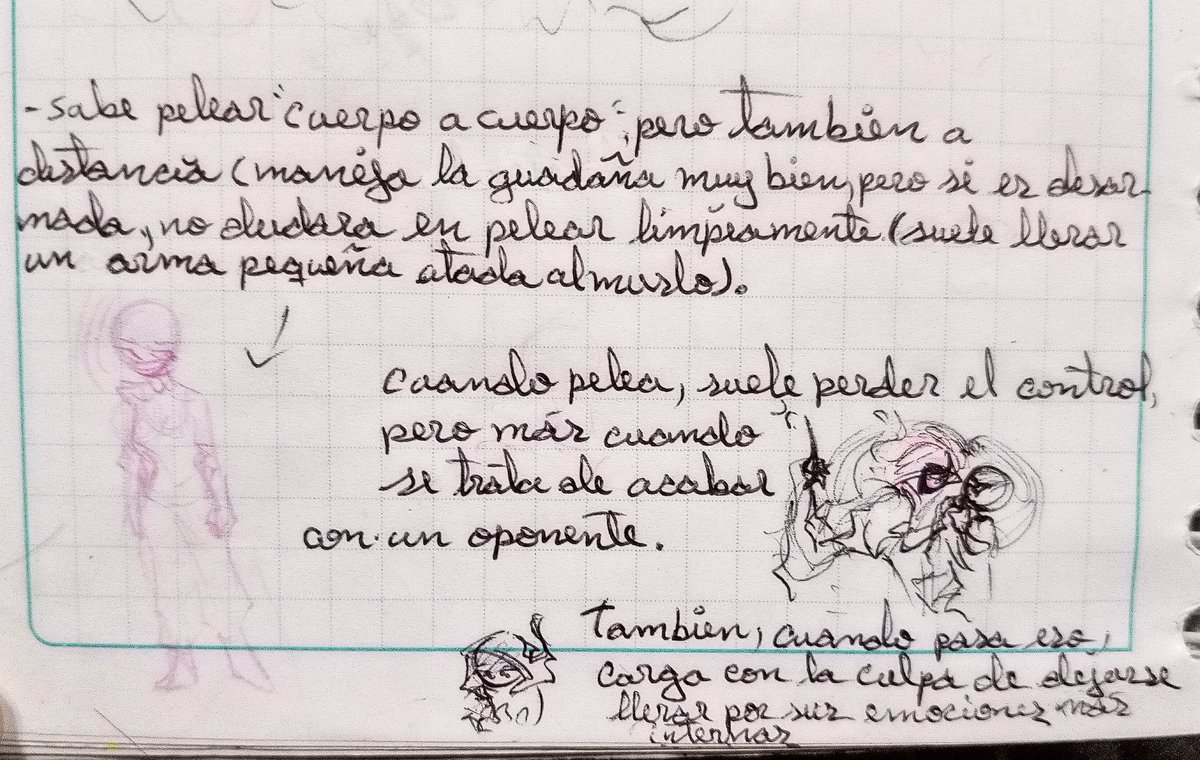 -sabe pelear "cuerpo a cuerpo", pero también a
distancia (maneja la guadaña muy bien, pero si es desar-
mada, no dudara en pelear limpiamente.(suele llevar
un arma pequeña atada al muslo).
cuando pelea, suele perder el control,
pero más cuando
se trata de acabar
con un oponente.
También, cuando pasa eso,
carga con la culpa de dejarse
llevar por sus emociones más
internas